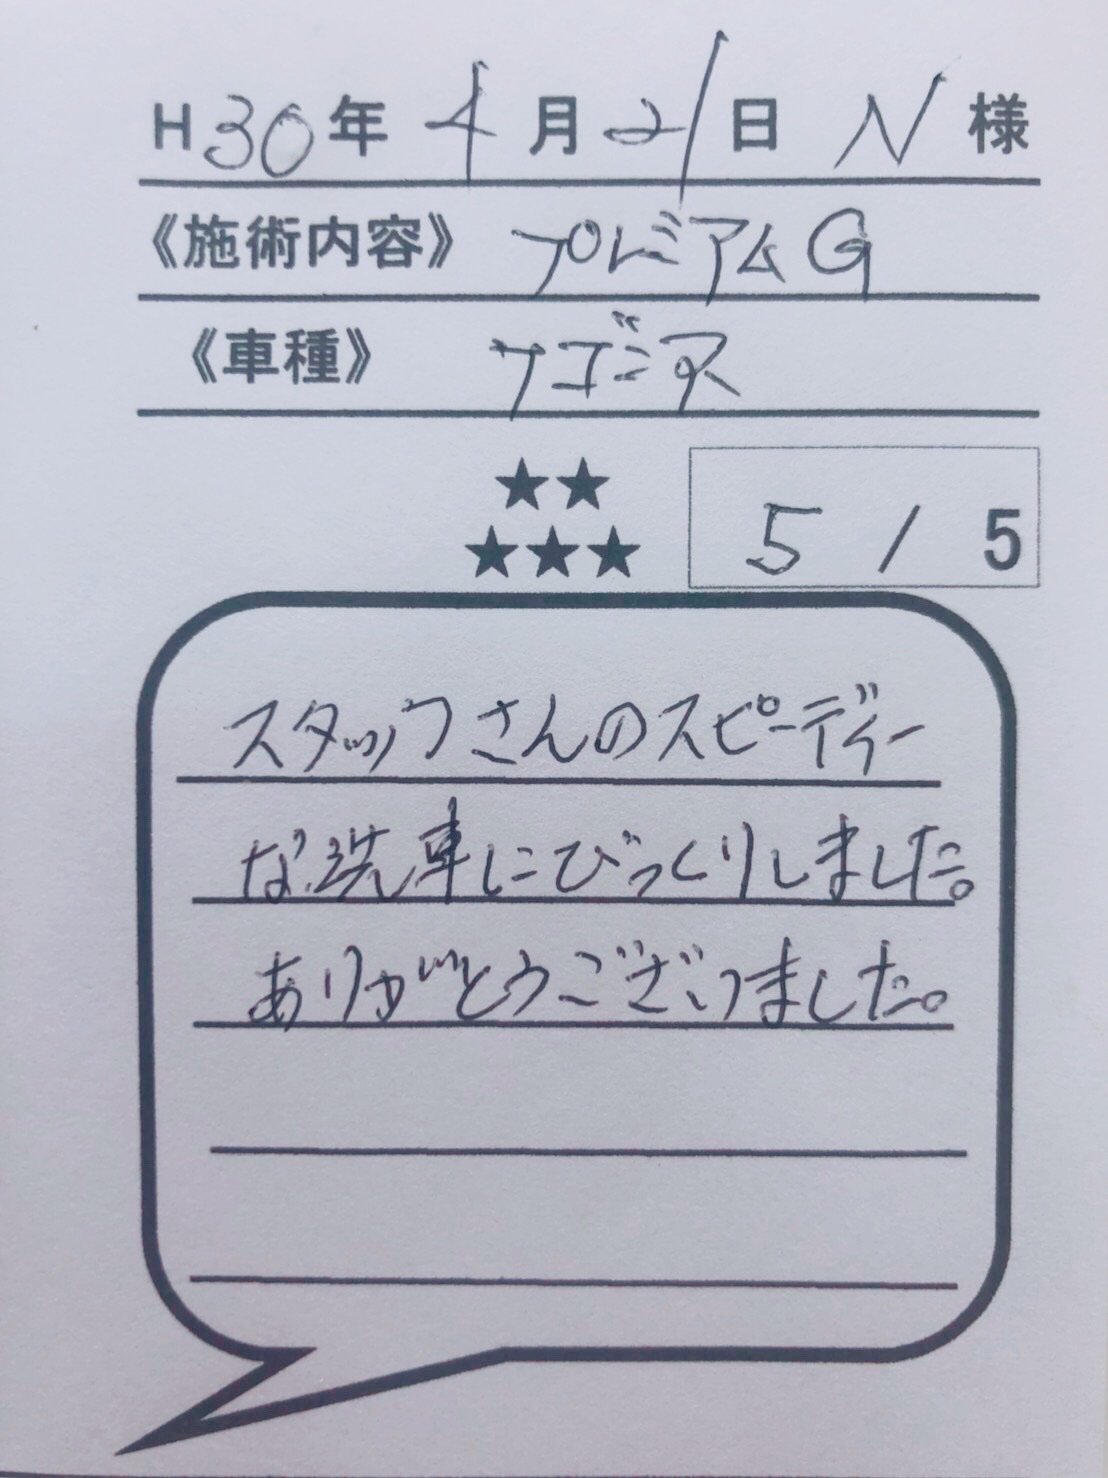 H30年 4月21日 N様
《施術内容》 プレミアムG
《車種》
★★
★★★ 5 / 5
スタッフさんのスピーディー
な洗車にびっくりしました。
ありがとうございました。